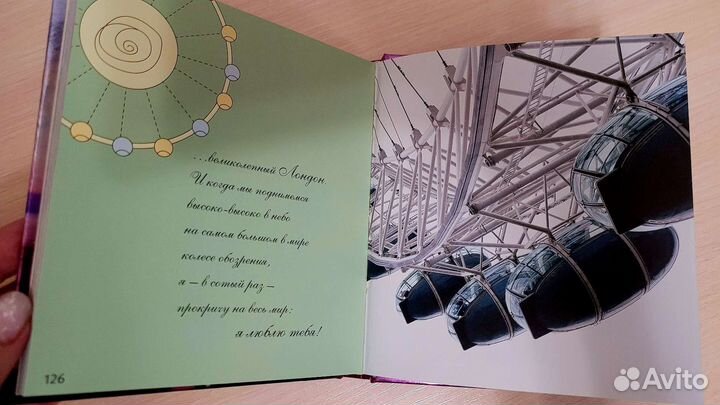 ...великолепный Лондон.
И когда мы поднимемся
высоко-высоко в небо
на самом большом в мире
колесе обозрения,
я – в сотый раз –
прокричу на весь мир:
я люблю тебя!
126
Avito